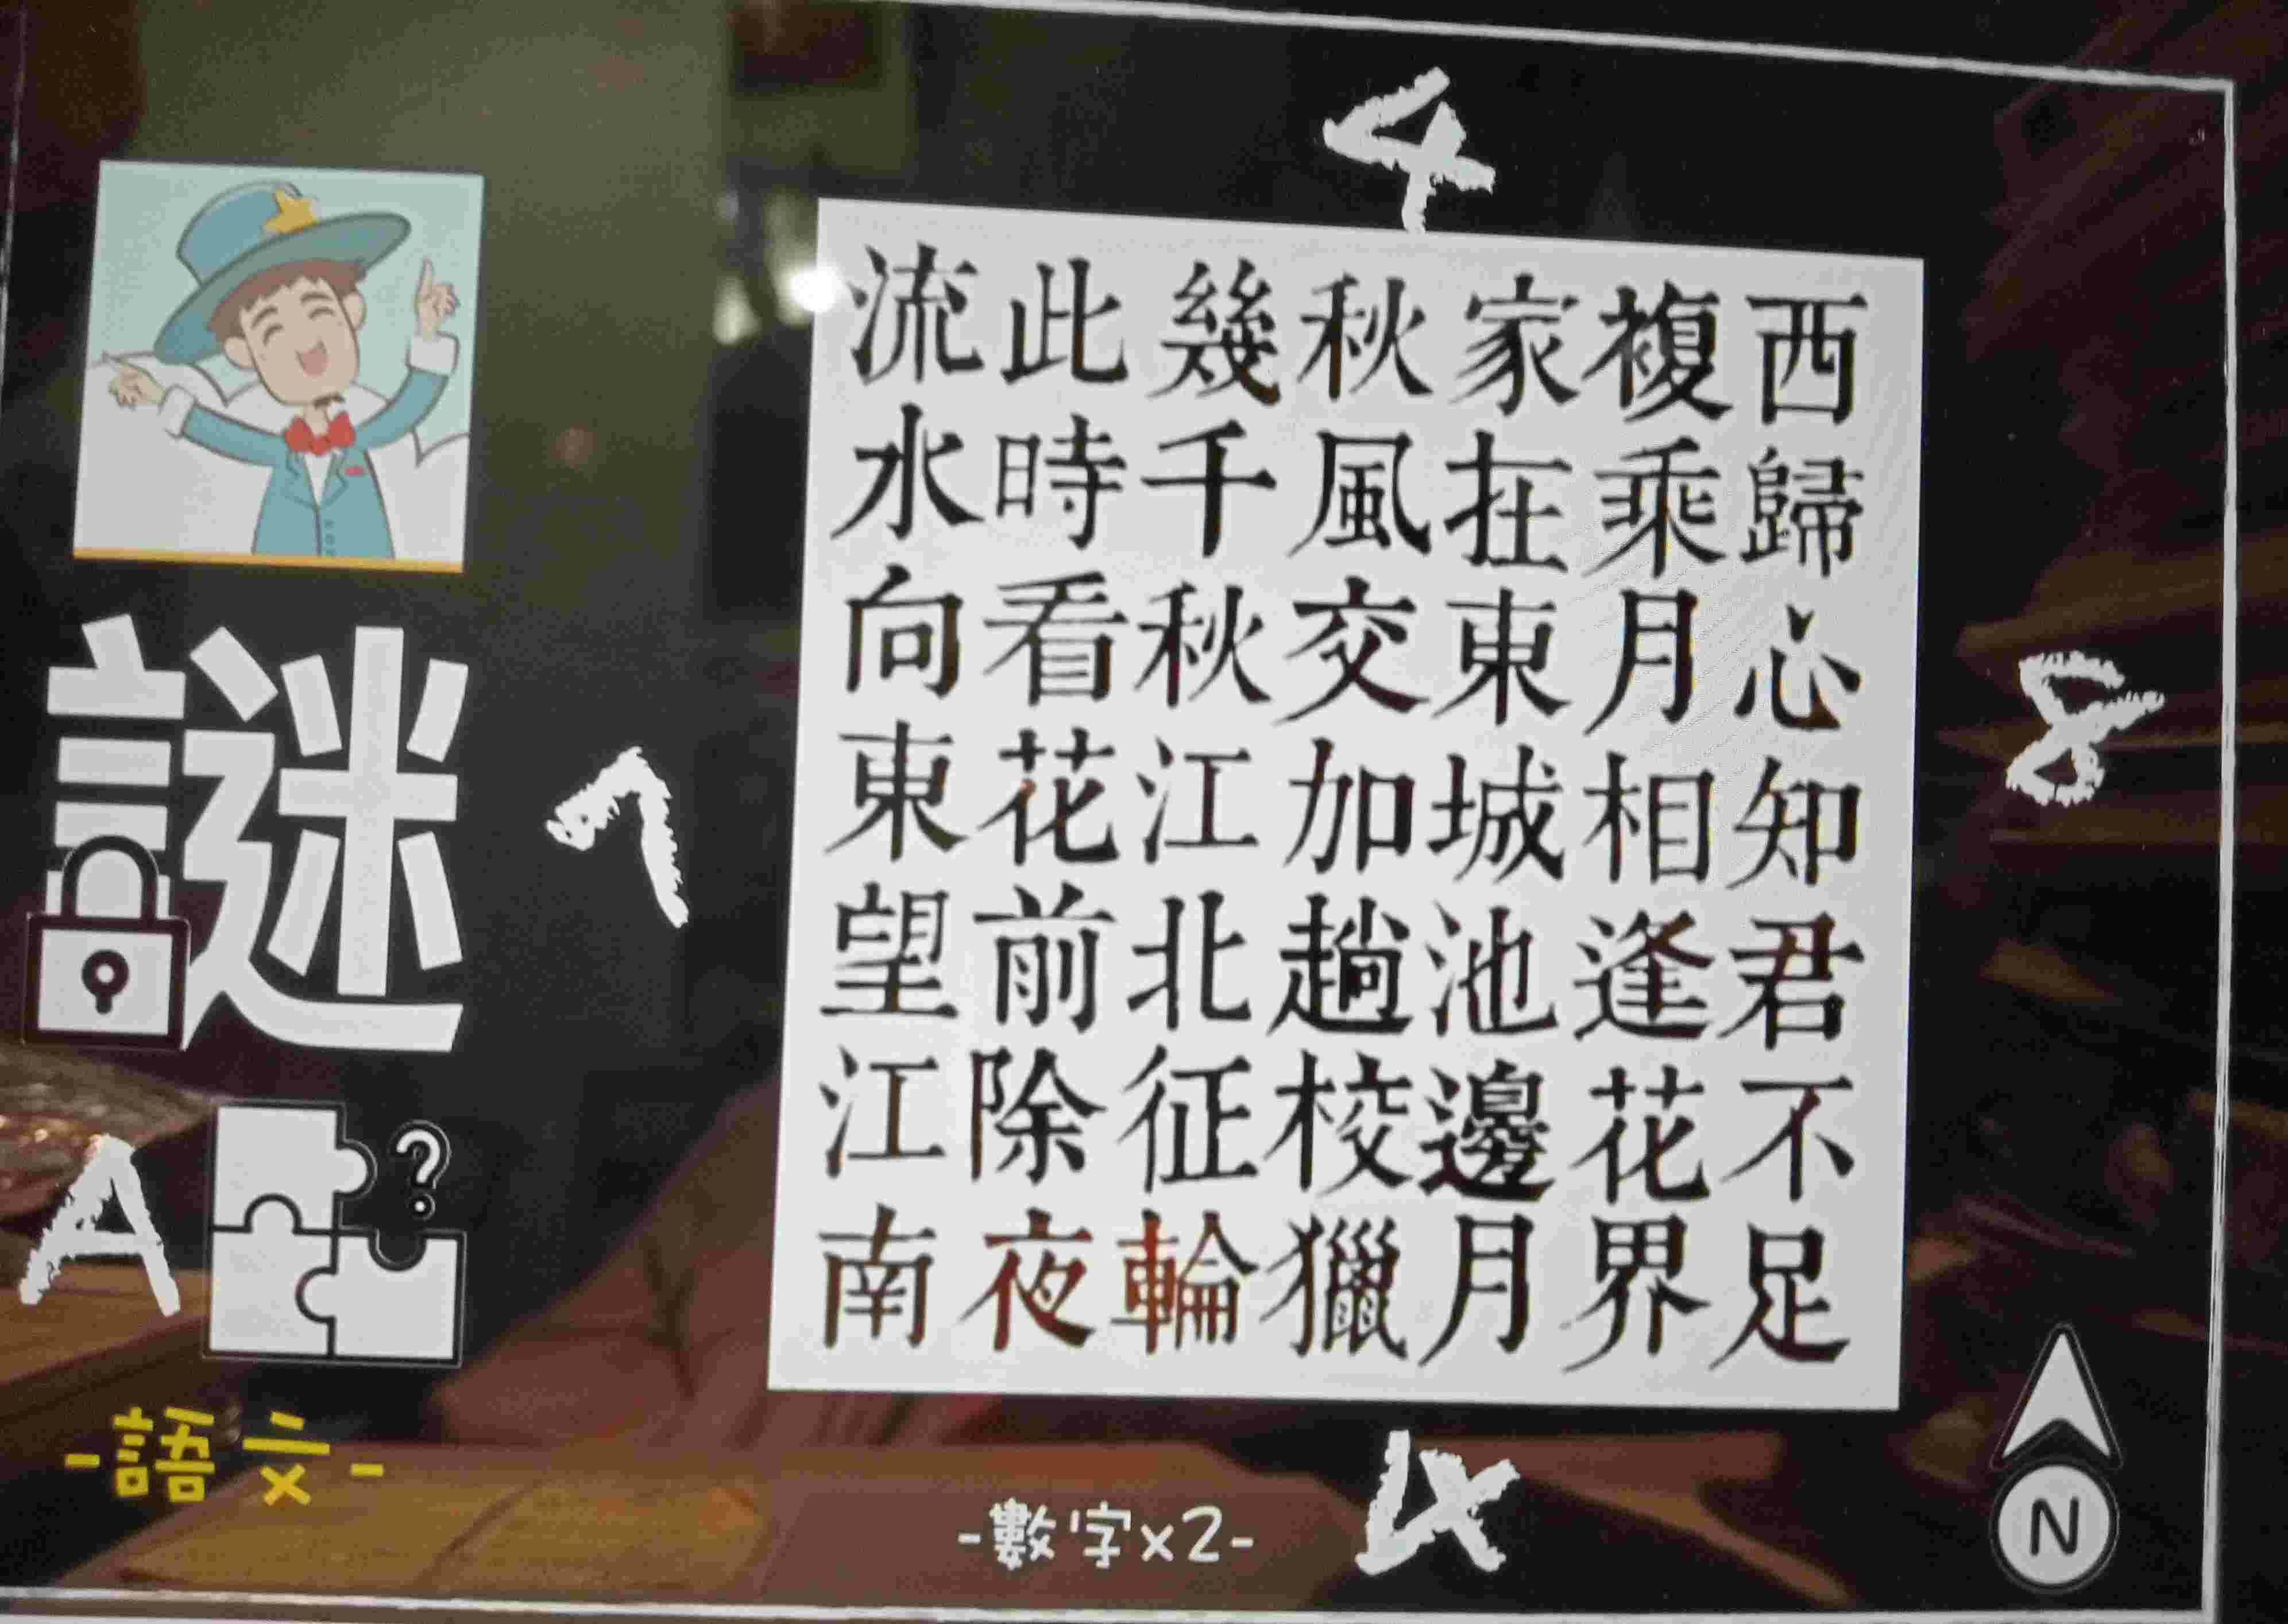 4
西歸心知君不足
複乘月相逢花界
家在東城池邊月
秋風交加趟校獵
幾千秋江北征輪
此時看花前除夜
流水向東望江南
8
7
謎
A
?
-語文-
-數字x2-
N